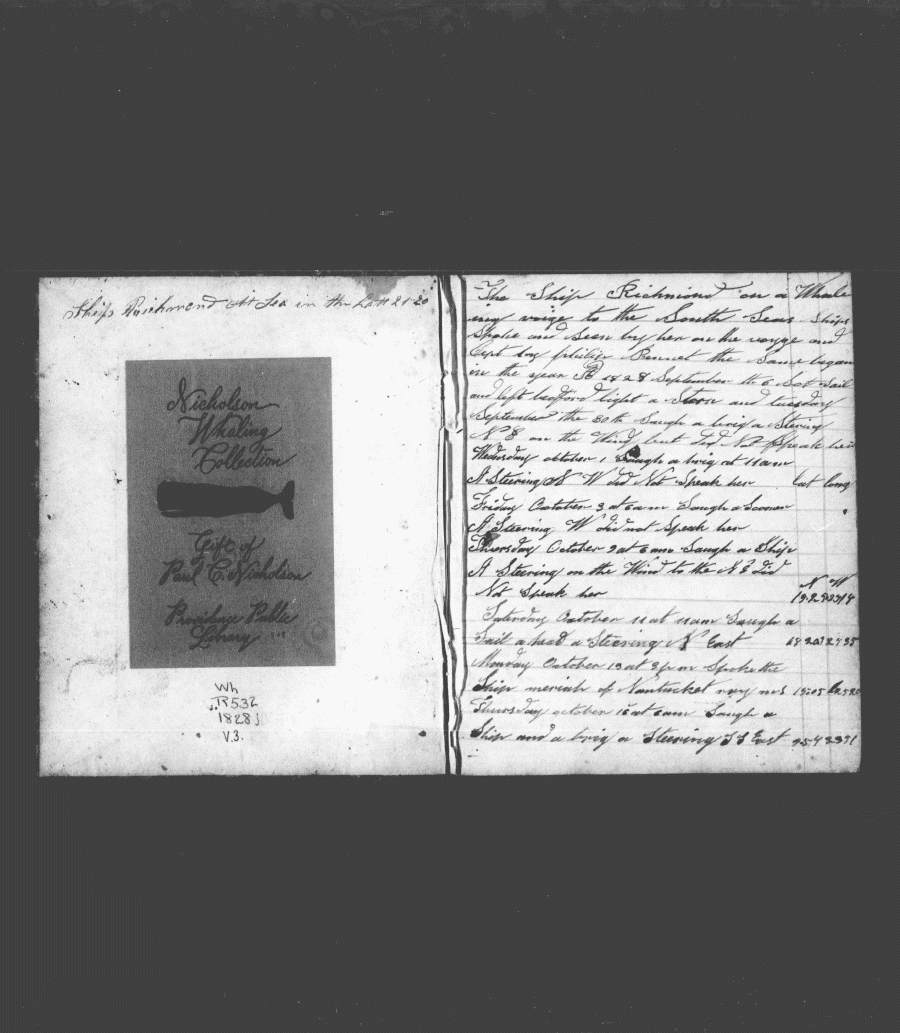 Ships Richmond At Sea in the Latt 21-20
Nicholson
Whaling
Collection
Gift of
Paul C. Nicholson
Providence Public
Library
Wh
R532
1828j
V.3.
The Ship Richmond on a Whale
ing voige to the South Seas Ships
Spoke and Seen by her on the voyge and
Cept by philip Bennet the Same began
in the year 1828 September the 6 Set Sail
and left bedford light a Stern and tuesday
September the 30th Saugh a brig a Stering
N E on the Wind but Did Not Speak her
Wedsday october 1 Saugh a brig at 11 am
A Steering W did Not Speak her lat long
Friday October 3 at 6 am Saugh a Sconer
A Steering W did not Speak her
Thursday October 9 at 6 am Saugh a Ship
A Steering on the Wind to the N E Did
N W
Not Speak her
Saturday October 11 at 11 am Saugh a
Sail a head a Steering N East
Monday October 13 at 3 pm Spoke the
Ship meriah of Nantucket
Thursday october 16 at 6 am Saugh a
Ship and a brig a Steering S S East